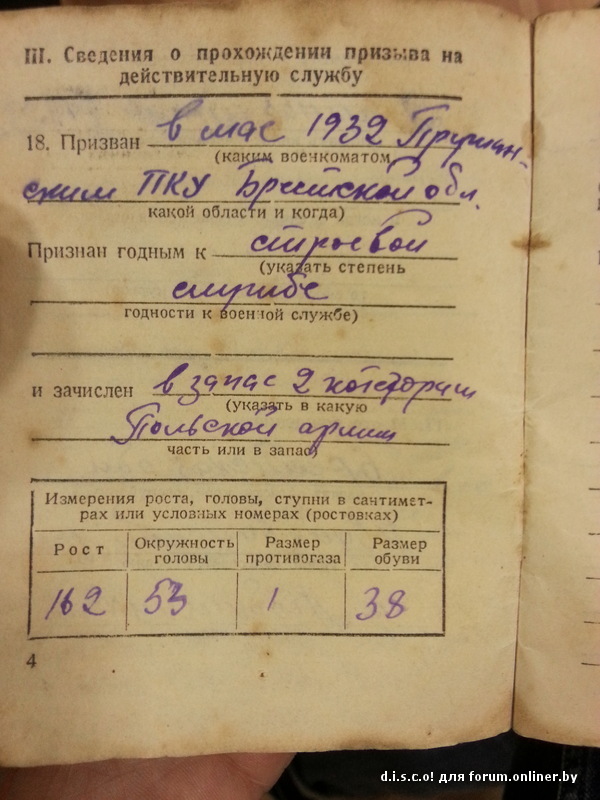 III. Сведения о прохождении призыва на
действительную службу
18. Призван в мае 1932 Пружан-
(каким военкоматом
ским ПКУ Брестской обл.
какой области и когда)
Признан годным к строевой
(указать степень
службе
годности к военной службе)
и зачислен в запас 2 категории
(указать в какую
Польской армии
часть или в запас)
Измерения роста, головы, ступни в сантимет-
рах или условных номерах (ростовках)
Рост Окружность головы Размер противогаза Размер обуви
162 53 1 38
4
d.i.s.c.o! для forum.onliner.by